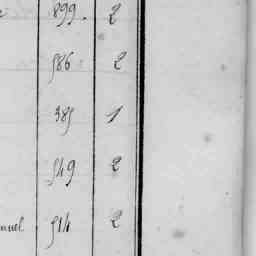 899. 2
586 2
385 1
549 2
nuel 514 2